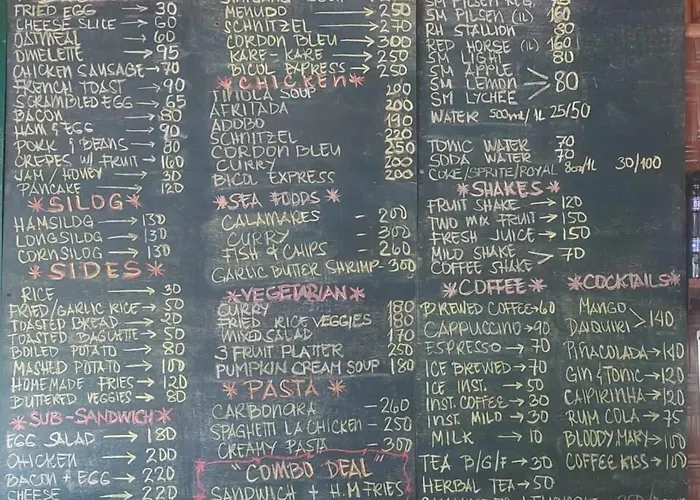 FRIED EGG → 30
CHEESE SLICE → 60
OATMEAL → 60
OMELETTE → 95
CHICKEN SAUSAGE → 70
FRENCH TOAST → 90
SCRAMBLED EGG → 65
BACON → 80
HAM & EGG → 90
PORK & BEANS → 80
CREPES W/ FRUIT → 160
JAM / HONEY → 30
PANCAKE → 120
* SILOG *
HAMSILOG → 130
LONGSILOG → 130
CORNSILOG → 130
* SIDES *
RICE → 30
FRIED/GARLIC RICE → 50
TOASTED BREAD → 20
TOASTED BAGUETTE → 50
BOILED POTATO → 80
MASHED POTATO → 100
HOMEMADE FRIES → 120
BUTTERED VEGGIES → 80
* SUB-SANDWICH *
EGG SALAD → 180
CHICKEN → 200
BACON + EGG → 220
CHEESE → 220
MENUDO → 250
SCHNITZEL → 270
CORDON BLEU → 300
KARE-KARE → 250
BICOL EXPRESS → 250
* CHICKEN *
TINOLA SOUP 200
AFRITADA 200
ADOBO 190
SCHNITZEL 220
CORDON BLEU 250
CURRY 200
BICOL EXPRESS 200
* SEA FOODS *
CALAMARES - 200
CURRY - 300
FISH & CHIPS - 260
GARLIC BUTTER SHRIMP - 300
* VEGETARIAN *
CURRY 180
FRIED RICE VEGGIES 180
MIXED SALAD 170
3 FRUIT PLATTER 250
PUMPKIN CREAM SOUP 180
* PASTA *
CARBONARA - 260
SPAGHETTI LA CHICKEN - 250
CREAMY PASTA - 300
"COMBO DEAL"
SANDWICH + H.M FRIES
SM PILSEN (1L) 160
RH STALLION 80
RED HORSE (1L) 160
SM LIGHT 80
SM APPLE
SM LEMON > 80
SM LYCHEE
WATER 500ml/1L 25/50
TONIC WATER 70
SODA WATER 70
COKE/SPRITE/ROYAL 8oz/1L 30/100
* SHAKES *
FRUIT SHAKE → 120
TWO MIX FRUIT → 150
FRESH JUICE → 150
MILO SHAKE > 70
COFFEE SHAKE
* COFFEE *
BREWED COFFEE → 60
CAPPUCCINO → 90
ESPRESSO → 70
ICE BREWED → 70
ICE INST. → 50
INST. COFFEE → 30
INST. MILO → 30
MILK → 10
TEA B/G/F → 30
HERBAL TEA → 50
* COCKTAILS *
MANGO
DAIQUIRI > 140
PIÑACOLADA → 140
GIN & TONIC → 120
CAIPIRINHA → 120
RUM COLA → 75
BLOODY MARY → 100
COFFEE KISS → 100